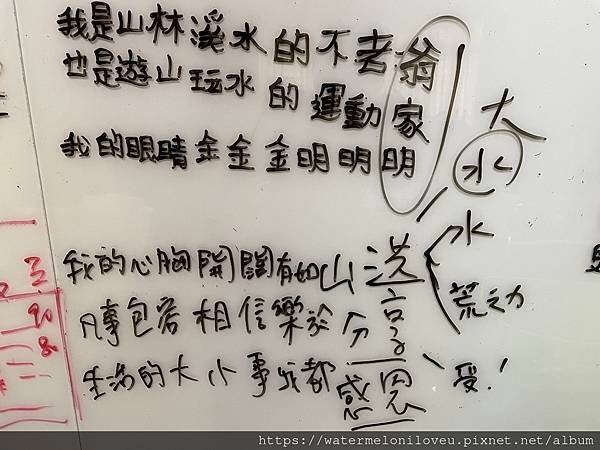 我是山林溪水的不老翁
也是遊山玩水的運動家
我的眼睛金金金明明明
大
水
水
我的心胸開闊有如山洪
荒之力
凡事包容相信樂於分享
生活的大小事我都感恩
受!
https://watermeloniloveu.pixnet.net/album